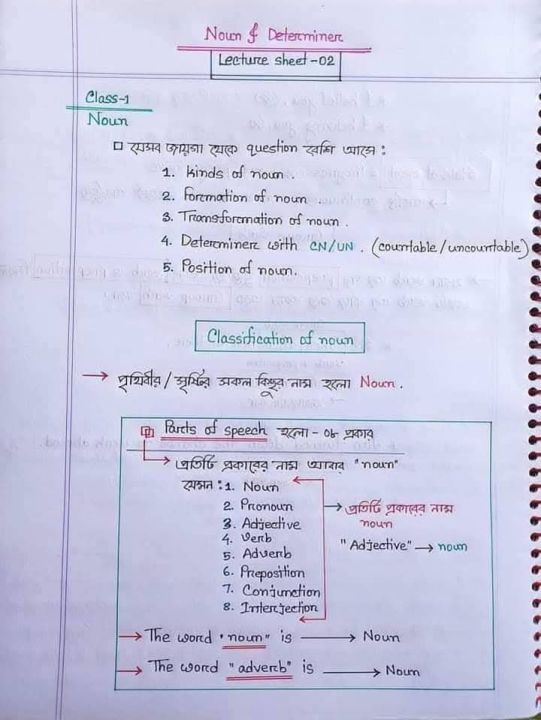 Noun & Determiner
Lecture sheet-02
Class-1
Noun
যেসব জায়গা থেকে question বেশি আসে:
1. Kinds of noun
2. Formation of noun.
3. Transformation of noun.
4. Determiner with CN/UN. (countable/uncountable)
5. Position of noun.
Classification of noun
→ পৃথিবীর/সৃষ্টির সকল কিছুর নাম হলো Noun.
Parts of speech হলো - ০৮ প্রকার
→ প্রতিটি প্রকারের নাম আবার "noun"
যেমন: 1. Noun
2. Pronoun
3. Adjective
4. Verb
5. Adverb
6. Preposition
7. Conjunction
8. Interjection
→ প্রতিটি প্রকারের নাম
noun
"Adjective" → noun
→ The word "noun" is → Noun
→ The word "adverb" is → Noun